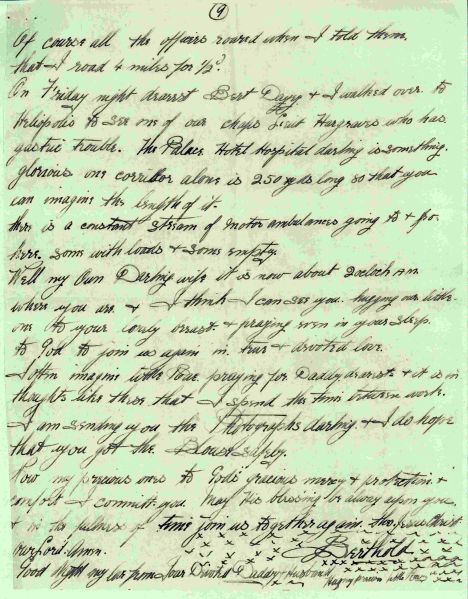 (9)
Of course all the officers roared when I told them
that I road 4 miles for ½ d.
On Friday night dearest Bert Davy & I walked over to
Heliopolis to see one of our chaps Lieut Hargraves who has
gastric trouble. The Palace Hotel Hospital darling is something
glorious one corridor alone is 250 yds long so that you
can imagine the length of it.
there is a constant stream of motor ambulances going to & fro
here. some with loads & some empty.
Well my Own Darling wife it is now about 2oclock AM
where you are & I think I can see you. hugging our little
one to your lovely breast & praying even in your sleep
to God to join us again in true & devoted love.
I often imagine little praying for Daddy dearest & it is in
thoughts like these that I spend the time between work.
I am sending you the Photographs darling & I do hope
that you got the Blouse safely.
Now my precious ones to Gods gracious mercy & protection &
comfort I commit you. May His blessing be always upon you
& in the fulness of time join us together again. thro Jesus Christ
Our Lord. Amen. Berthold
Good Night my love from Your Devoted Daddy & Husband